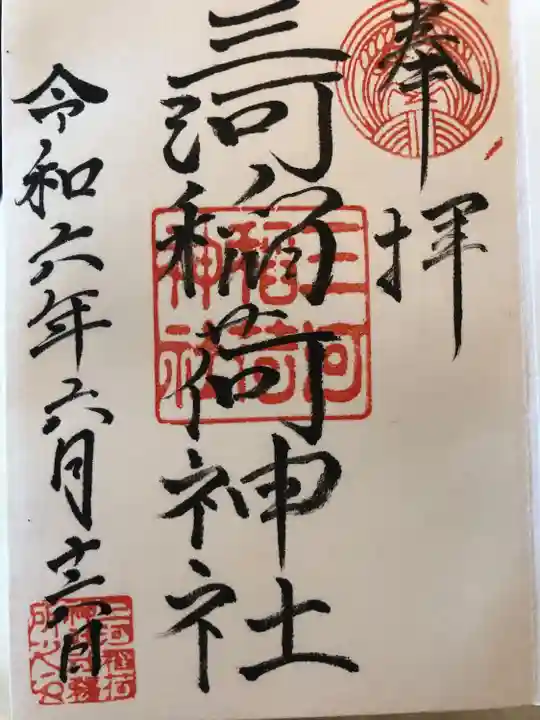 奉拝
三河稲荷神社
三河
稲荷
神社
令和六年六月十六日
三河稲荷